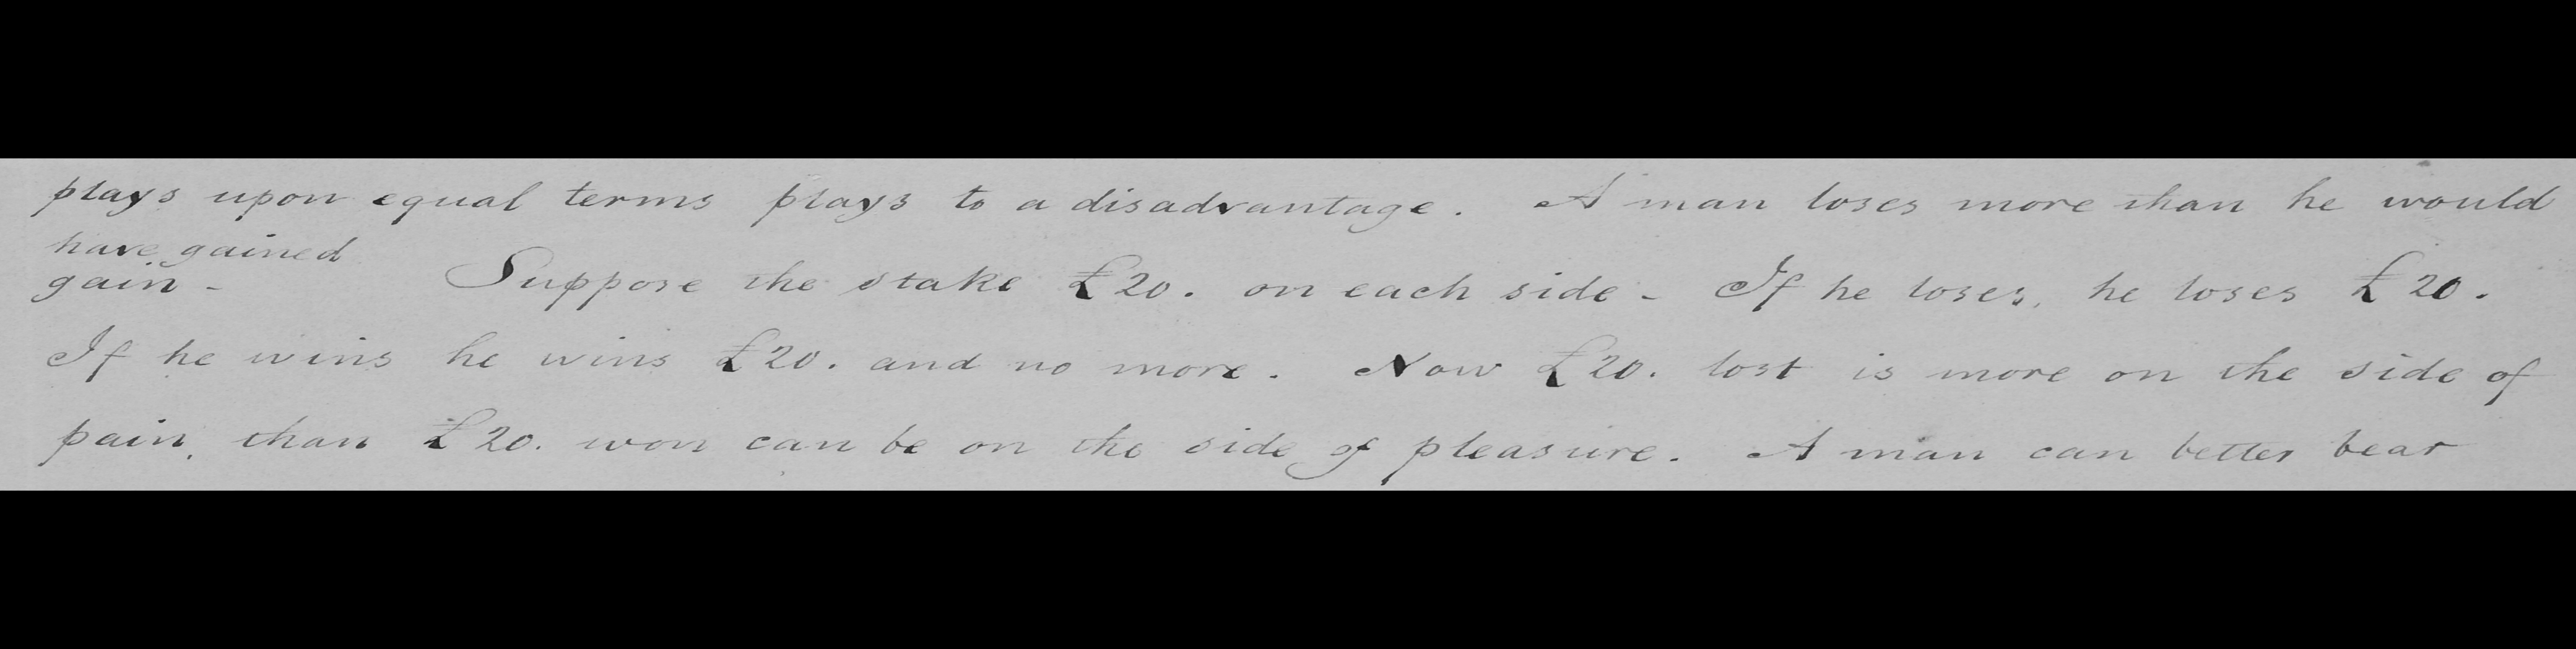 plays upon equal terms plays to a disadvantage. A man loses more than he would
have gained
gain -   Suppose the stake £20. on each side - If he loses, he loses £20.
If he wins he wins £20. and no more. Now £20. lost is more on the side of
pain, than £20. won can be on the side of pleasure. A man can better bear